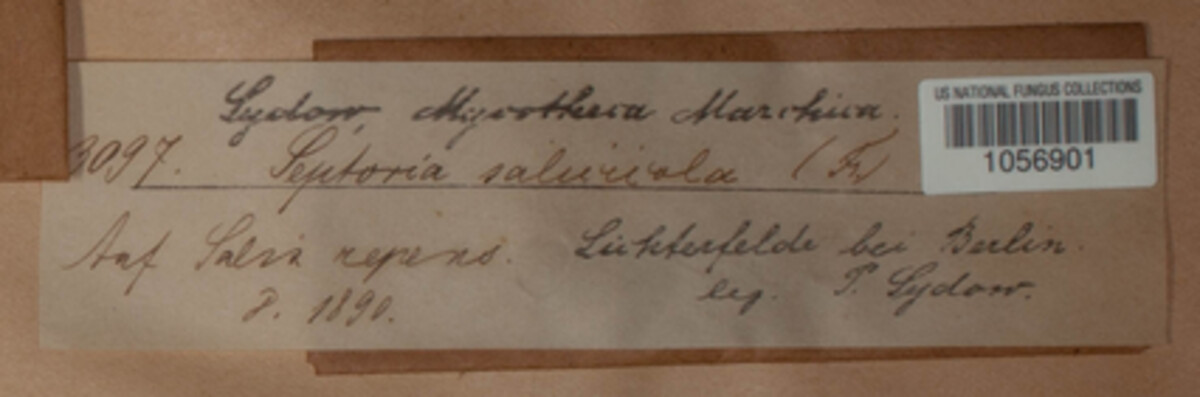 Sydow, Mycotheca Marchica.
US NATIONAL FUNGUS COLLECTIONS
1056901
3097. Septoria salicicola (Fr)
Auf Salix repens. Lichterfelde bei Berlin.
8. 1890. leg. P. Sydow.